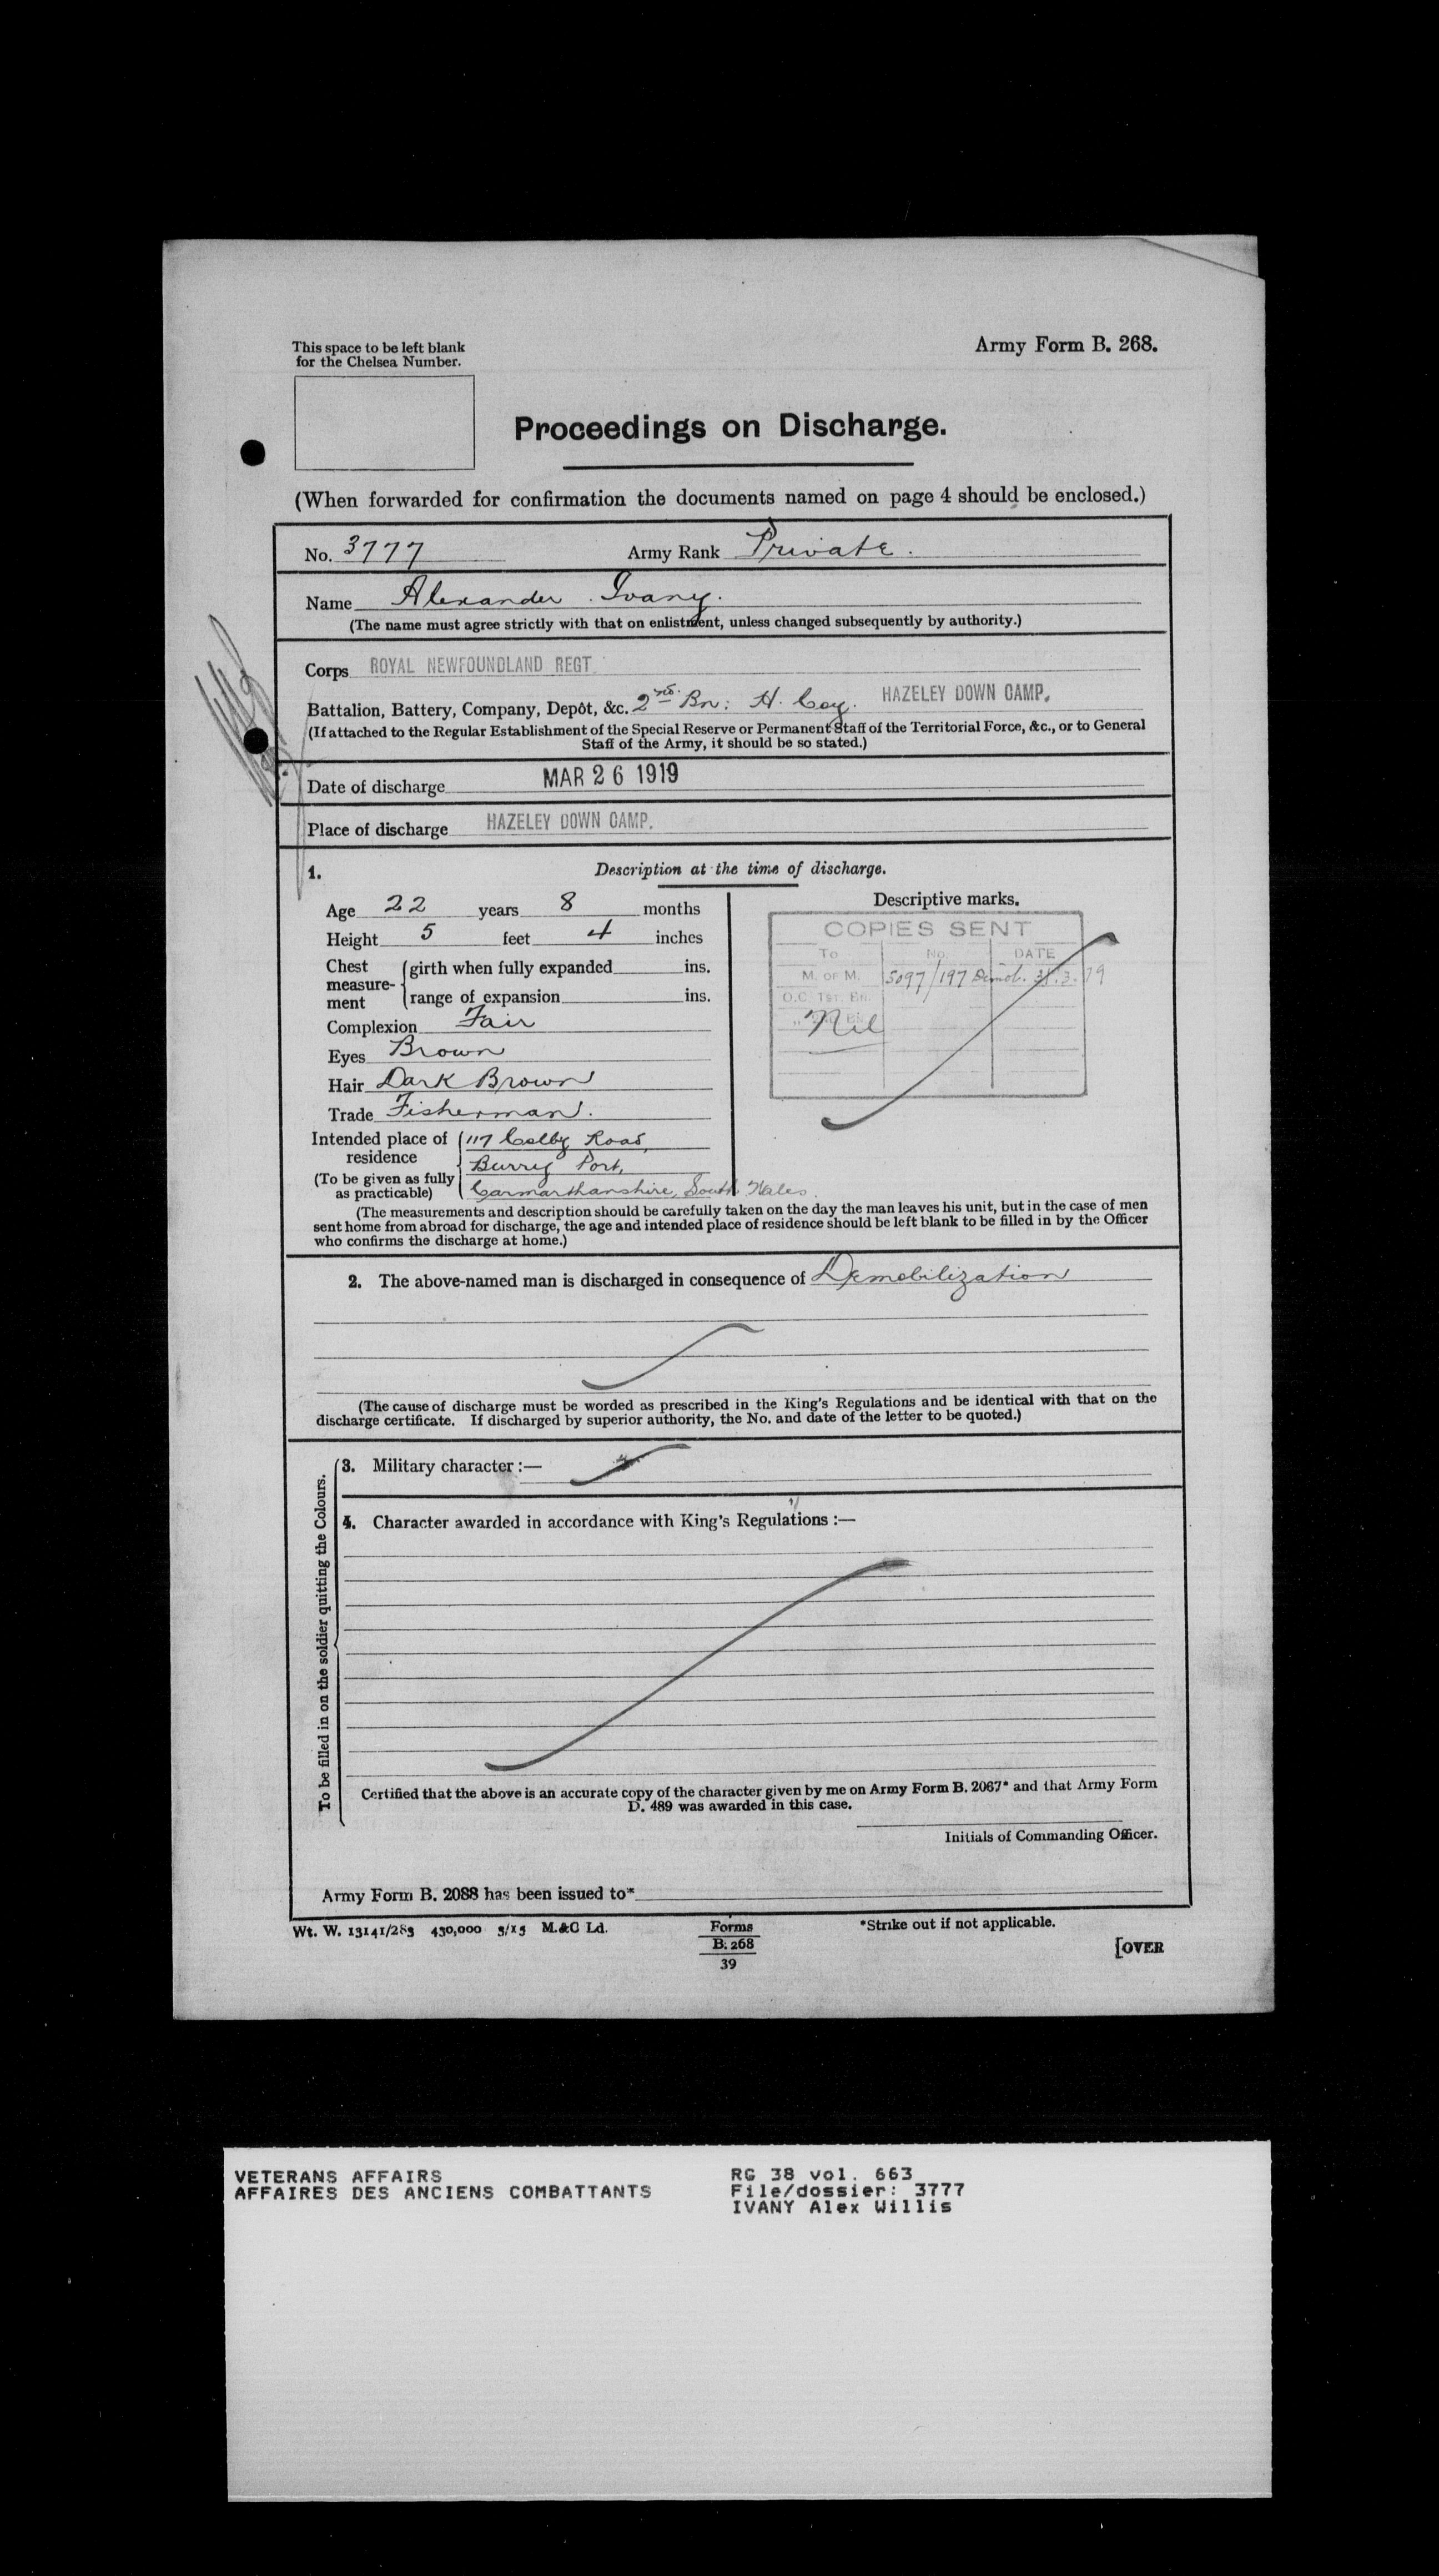 This space to be left blank
for the Chelsea Number.
Army Form B. 268.
Proceedings on Discharge.
(When forwarded for confirmation the documents named on page 4 should be enclosed.)
No. 3777 Army Rank Private.
Name Alexander Ivany.
(The name must agree strictly with that on enlistment, unless changed subsequently by authority.)
Corps ROYAL NEWFOUNDLAND REGT.
Battalion, Battery, Company, Depôt, &c. 2nd Bn: H. Coy. HAZELEY DOWN CAMP.
(If attached to the Regular Establishment of the Special Reserve or Permanent Staff of the Territorial Force, &c., or to General
Staff of the Army, it should be so stated.)
Date of discharge MAR 26 1919
Place of discharge HAZELEY DOWN CAMP.
1. Description at the time of discharge.
Age 22 years 8 months
Height 5 feet 4 inches
Chest measure-ment girth when fully expanded ins.
range of expansion ins.
Complexion Fair
Eyes Brown
Hair Dark Brown
Trade Fisherman.
Intended place of residence 117 Colby Road,
Burry Port,
(To be given as fully as practicable) Carmarthanshire, South Wales.
Descriptive marks.
COPIES SENT
To No. DATE
M. OF M. 5097/197 Demob. 31.3.19
O.C. 1st. Bn.
Nil
(The measurements and description should be carefully taken on the day the man leaves his unit, but in the case of men
sent home from abroad for discharge, the age and intended place of residence should be left blank to be filled in by the Officer
who confirms the discharge at home.)
2. The above-named man is discharged in consequence of Demobilization
(The cause of discharge must be worded as prescribed in the King's Regulations and be identical with that on the
discharge certificate. If discharged by superior authority, the No. and date of the letter to be quoted.)
To be filled in on the soldier quitting the Colours.
3. Military character :—
4. Character awarded in accordance with King's Regulations :—
Certified that the above is an accurate copy of the character given by me on Army Form B. 2067* and that Army Form
D. 489 was awarded in this case.
Initials of Commanding Officer.
Army Form B. 2088 has been issued to*
Wt. W. 13141/283 430,000 3/15 M.&C Ld.
Forms
B. 268
39
*Strike out if not applicable.
[OVER
VETERANS AFFAIRS
AFFAIRES DES ANCIENS COMBATTANTS
RG 38 vol. 663
File/dossier: 3777
IVANY Alex Willis